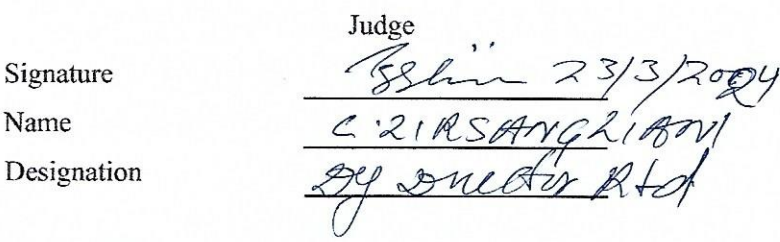 Judge
Signature 23/3/2024
Name C. ZIRSANGZIANI
Designation Dy Director Rtd